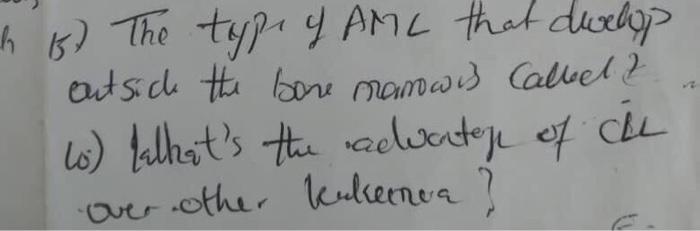 15) The type of AML that develop
outside the bone marrow is Called?
16) What's the advantage of CLL
over other leukemea?